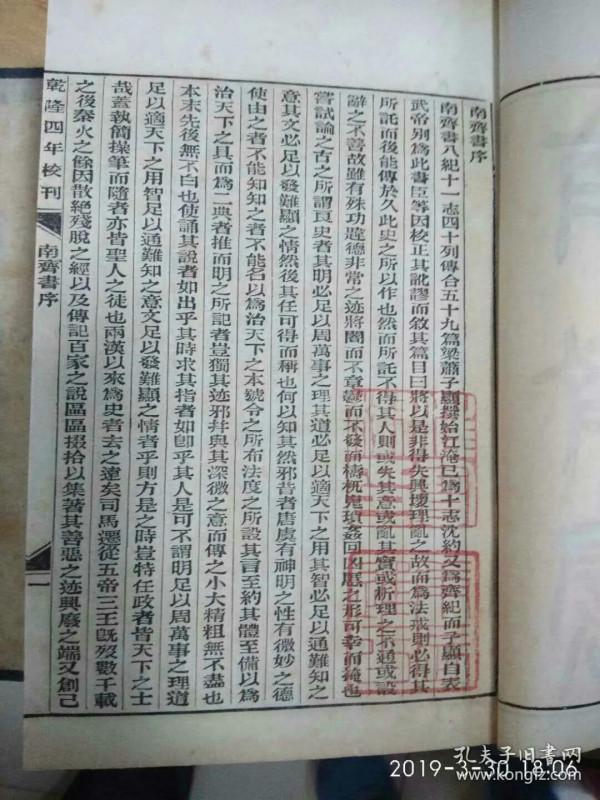 南齊書序
南齊書八紀十一志四十列傳合五十九篇梁蕭子顯撰始江淹已爲十志沈約又爲齊紀而子顯自表
武帝别爲此書臣等因校正其訛謬而敘其篇目曰將以是非得失興壞理亂之故而爲法戒則必得其
所託而後能傳於久此史之所以作也然而所託不得其人則或失其意或亂其實或析理之不通或設
辭之不善故雖有殊功韙德非常之迹將闇而不章鬱而不發而檮杌嵬瑣姦回凶慝之形可幸而掩也
嘗試論之古之所謂良史者其明必足以周萬事之理其道必足以適天下之用其智必足以通難知之
意其文必足以發難顯之情然後其任可得而稱也何以知其然邪昔者唐虞有神明之性有微妙之德
使由之者不能知知之者不能名以爲治天下之本號令之所布法度之所設其言至約其體至備以爲
治天下之具而爲二典者推而明之所記者豈獨其迹邪幷與其深微之意而傳之小大精粗無不盡也
本末先後無不白也使誦其說者如出乎其時求其指者如卽乎其人是可不謂明足以周萬事之理道
足以適天下之用智足以通難知之意文足以發難顯之情者乎則方是之時豈特任政者皆天下之士
哉蓋執簡操筆而隨者亦皆聖人之徒也兩漢以來爲史者去之遠矣司馬遷從五帝三王旣歿數千載
之後秦火之餘因散絶殘脫之經以及傳記百家之說區區掇拾以集著其善惡之迹興廢之端又創己
乾隆四年校刊
南齊書序
一
2019-3-30 18:06
孔夫子旧書网
www.kongfz.com